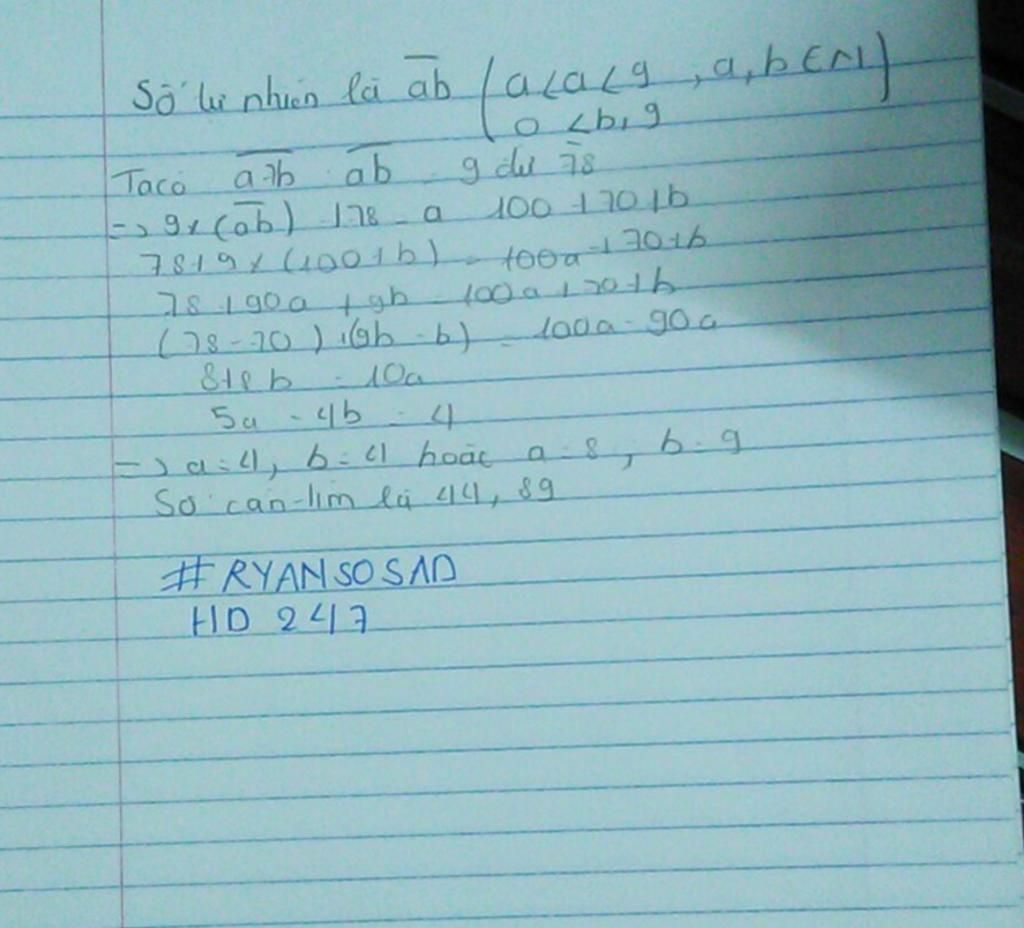 Số tự nhiên là ab (a<a<9 ,a,b∈N)
0 <b,9
Ta có a7b ab - 9 dư 78
=> 9x(ab) 178 - a 100 170 1b
7819x(100+b) - 100a + 70+b
78 + 90a + 9b - 100a + 70 + b
(78-70)+(9b-b) - 100a-90a
8+8b - 10a
5a - 4b = 4
=> a=4, b=4 hoặc a=8, b=9
Số cần tìm là 44, 89
#RYANSOSAD
HD 247